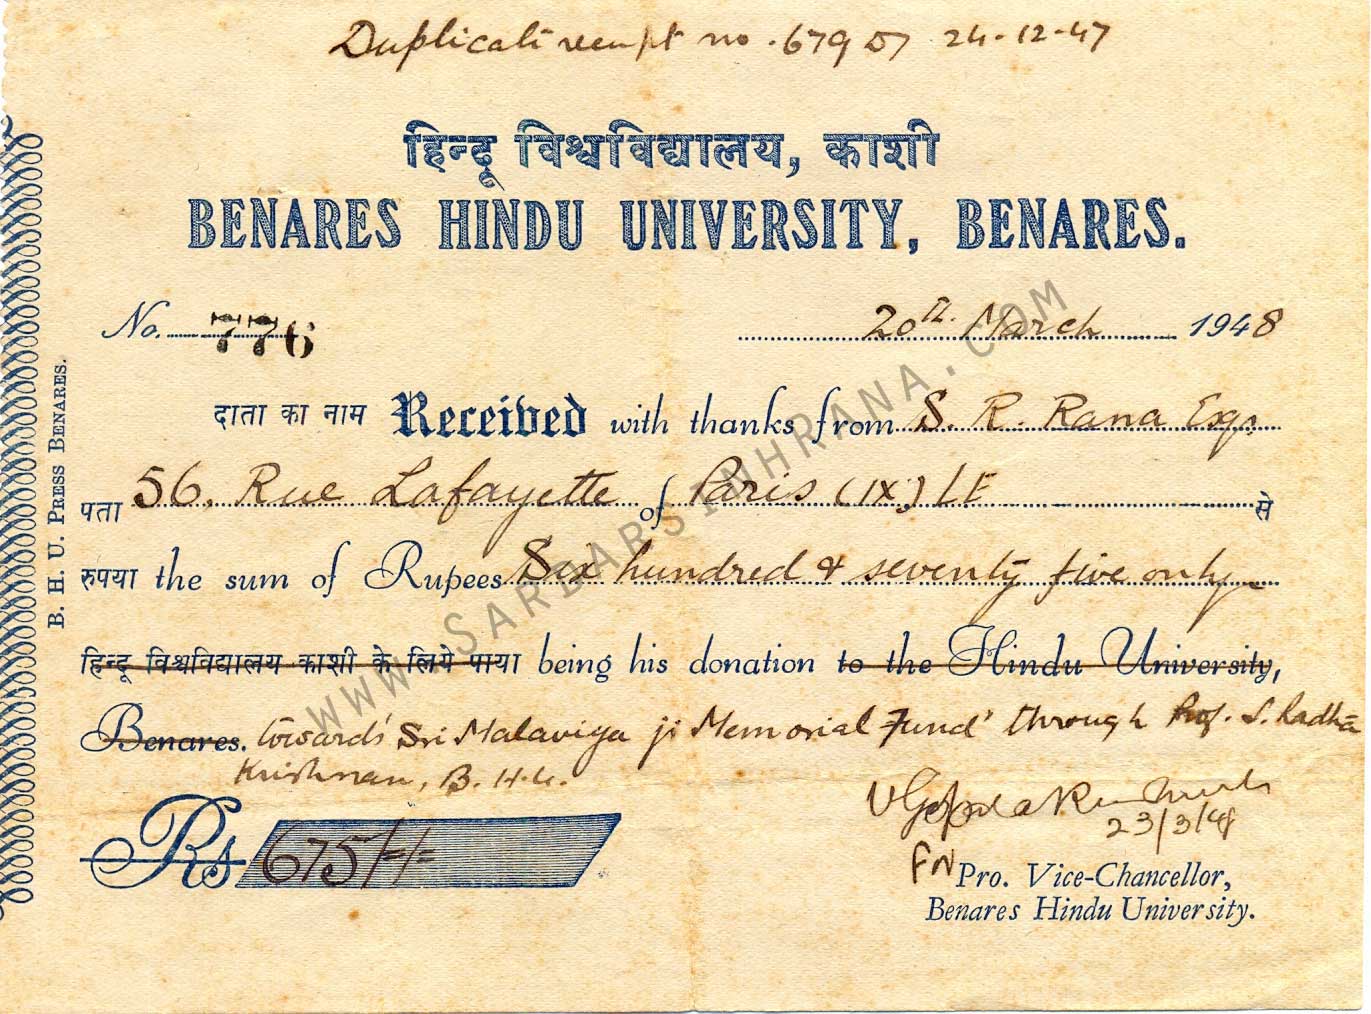 Duplicate receipt no. 67957 24-12-47
हिन्दू विश्वविद्यालय, काशी
BENARES HINDU UNIVERSITY, BENARES.
No. 776 20th March 1948
दाता का नाम Received with thanks from S. R. Rana Esq,
पता 56, Rue Lafayette of Paris (IX) LE से
रुपया the sum of Rupees Six hundred & seventy five only
हिन्दू विश्वविद्यालय काशी के लिये पाया being his donation to the Hindu University,
Benares. towards 'Sri Malaviya ji Memorial Fund' through Prof. S. Radha
Krishnan, B. H. U.
Rs 675/-/-
23/3/48
Pro. Vice-Chancellor,
Benares Hindu University.
B. H. U. PRESS BENARES.
www.SARDARSINHRANA.COM